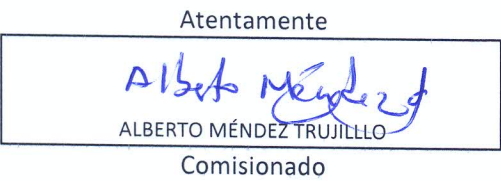 Atentamente
Alberto Méndez
ALBERTO MÉNDEZ TRUJILLLO
Comisionado